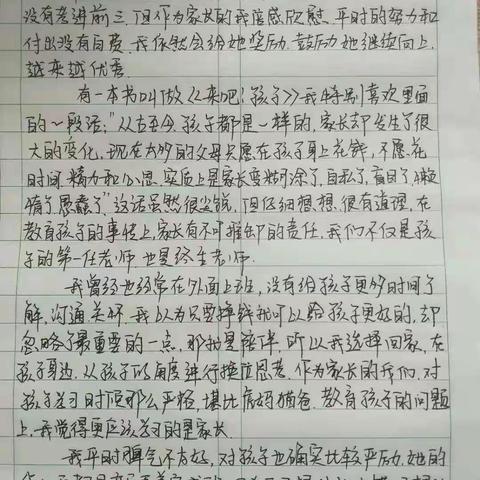 没有考进前三,但作为家长的我倍感欣慰,平时的努力和
付出没有白费,我依然会给她奖励,鼓励她继续向上,
越来越优秀.
有一本书叫做《来吧!孩子》我特别喜欢里面
的一段话:"从古至今,孩子都是一样的,家长却发生了很
大的变化,现在太多的父母只愿在孩子身上花钱,不愿花
时间,精力和心思,实质上是家长变糊涂了,自私了,盲目了,懒
惰了,愚蠢了"这话虽然很尖锐,但仔细想想,很有道理,在
教育孩子的事情上,家长有不可推卸的责任,我们不仅是孩
子的第一任老师,也是终生老师.
我曾经也经常在外面上班,没有给孩子更多时间了
解,沟通,关怀.我以为只要挣钱就可以给孩子更好的,却
忽略了最重要的一点,那就是陪伴,所以我选择回家,在
孩子身边,从孩子的角度进行换位思考.作为家长的我们,对
孩子学习时顶那么严格,堪比虎妈猫爸.教育孩子的问题
上,我觉得更应该学习的是家长.
我平时脾气不太好,对孩子也确实比较严厉,她的